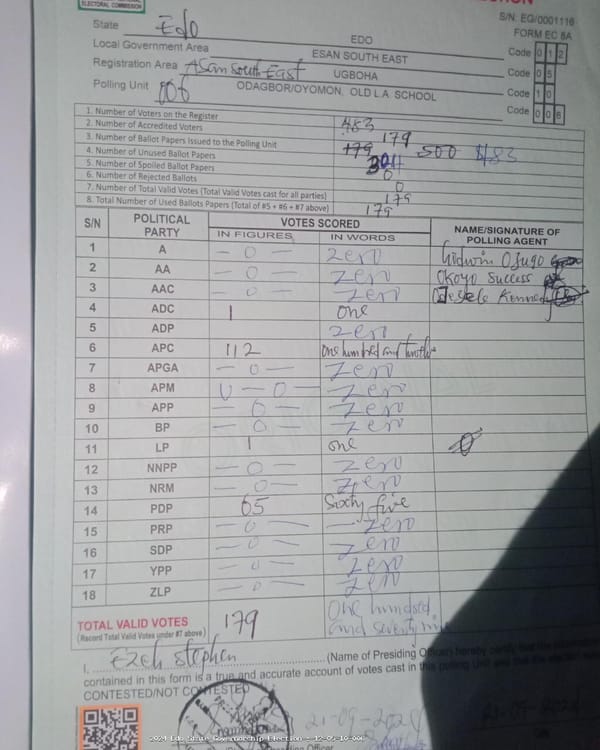 ELECTORAL COMMISSION
S/N: EG/0001116
FORM EC 8A
State Edo EDO Code 0 1 2
Local Government Area ESAN SOUTH EAST Code 0 5
Registration Area Asan South East UGBOHA Code 1 0
Polling Unit 006 ODAGBOR/OYOMON, OLD L.A. SCHOOL Code 0 0 6
1. Number of Voters on the Register 483
2. Number of Accredited Voters 179
3. Number of Ballot Papers Issued to the Polling Unit 179 500 483
4. Number of Unused Ballot Papers 304
5. Number of Spoiled Ballot Papers 0
6. Number of Rejected Ballots 0
7. Number of Total Valid Votes (Total Valid Votes cast for all parties) 179
8. Total Number of Used Ballots Papers (Total of #5 + #6 + #7 above) 179
S/N POLITICAL PARTY VOTES SCORED NAME/SIGNATURE OF POLLING AGENT
IN FIGURES IN WORDS
1 A - 0 - Zero Godwin Ojugo
2 AA - 0 - Zero Okoyo Success
3 AAC - 0 - Zero Kennedy
4 ADC 1 One
5 ADP Zero
6 APC 112 One hundred and twelve
7 APGA - 0 - Zero
8 APM 0 - 0 - Zero
9 APP - 0 - Zero
10 BP - 0 - Zero
11 LP 1 one
12 NNPP - 0 - Zero
13 NRM - 0 - Zero
14 PDP 65 Sixty five
15 PRP - 0 - - Zero
16 SDP - 0 - Zero
17 YPP - 0 - Zero
18 ZLP - 0 - Zero
TOTAL VALID VOTES 179 One hundred
(Record Total Valid Votes under #7 above) and seventy nine
I, Ezeh Stephen (Name of Presiding Officer) hereby certify that the
contained in this form is a true and accurate account of votes cast in this polling unit and that the
CONTESTED/NOT CONTESTED
21-09-2024 21-09-2024
2024 Edo State Governorship Election - 12-05-10-006
Presiding Officer